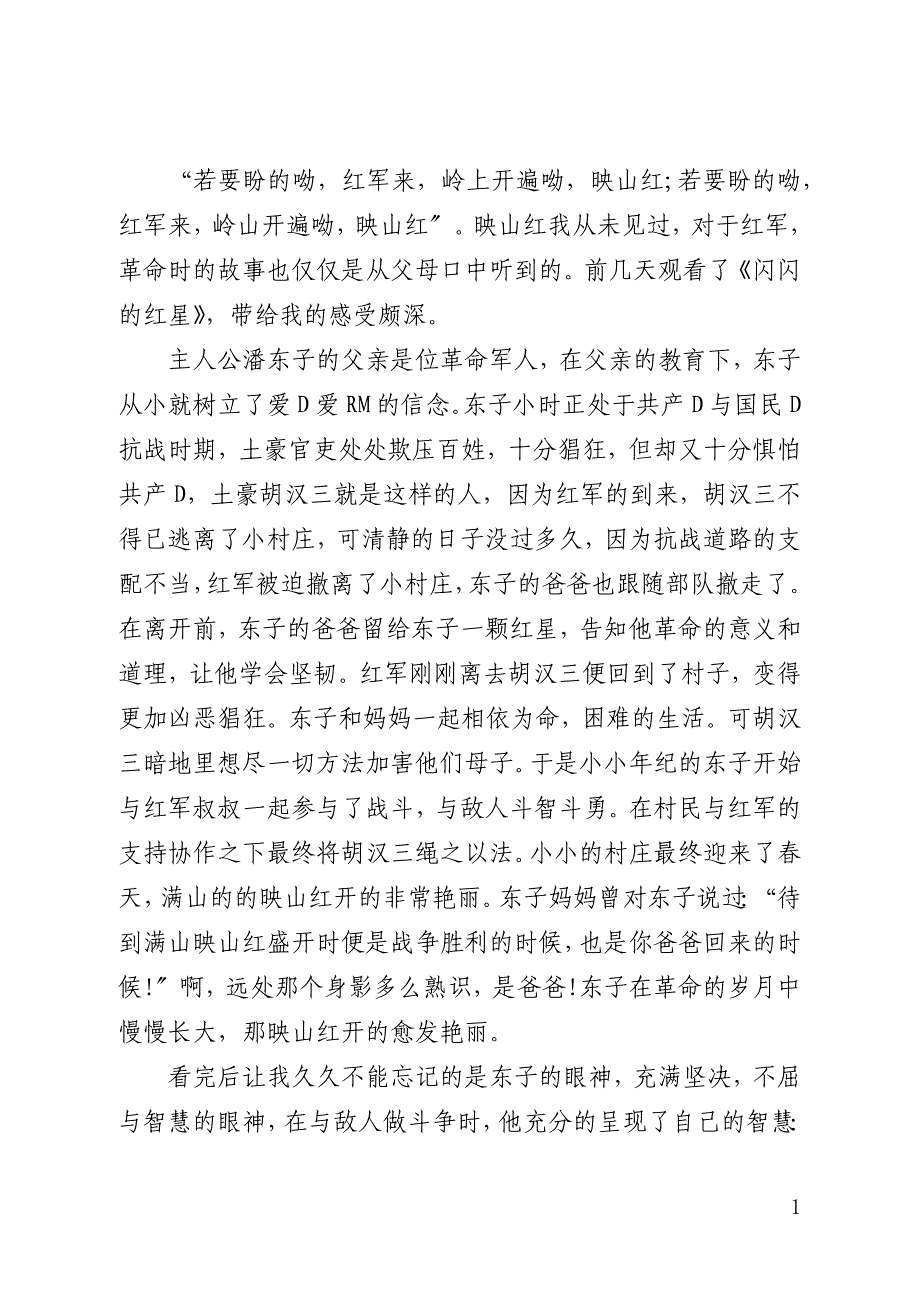 “若要盼的呦，红军来，岭上开遍呦，映山红;若要盼的呦，
红军来，岭山开遍呦，映山红〞。映山红我从未见过，对于红军，
革命时的故事也仅仅是从父母口中听到的。前几天观看了《闪闪
的红星》，带给我的感受颇深。
主人公潘东子的父亲是位革命军人，在父亲的教育下，东子
从小就树立了爱 D 爱 RM 的信念。东子小时正处于共产 D 与国民 D
抗战时期，土豪官吏处处欺压百姓，十分猖狂，但却又十分惧怕
共产 D，土豪胡汉三就是这样的人，因为红军的到来，胡汉三不
得已逃离了小村庄，可清静的日子没过多久，因为抗战道路的支
配不当，红军被迫撤离了小村庄，东子的爸爸也跟随部队撤走了。
在离开前，东子的爸爸留给东子一颗红星，告知他革命的意义和
道理，让他学会坚韧。红军刚刚离去胡汉三便回到了村子，变得
更加凶恶猖狂。东子和妈妈一起相依为命，困难的生活。可胡汉
三暗地里想尽一切方法加害他们母子。于是小小年纪的东子开始
与红军叔叔一起参与了战斗，与敌人斗智斗勇。在村民与红军的
支持协作之下最终将胡汉三绳之以法。小小的村庄最终迎来了春
天，满山的的映山红开的非常艳丽。东子妈妈曾对东子说过：“待
到满山映山红盛开时便是战争胜利的时候，也是你爸爸回来的时
候!〞啊，远处那个身影多么熟识，是爸爸!东子在革命的岁月中
慢慢长大，那映山红开的愈发艳丽。
看完后让我久久不能忘记的是东子的眼神，充满坚决，不屈
与智慧的眼神，在与敌人做斗争时，他充分的呈现了自己的智慧：
1